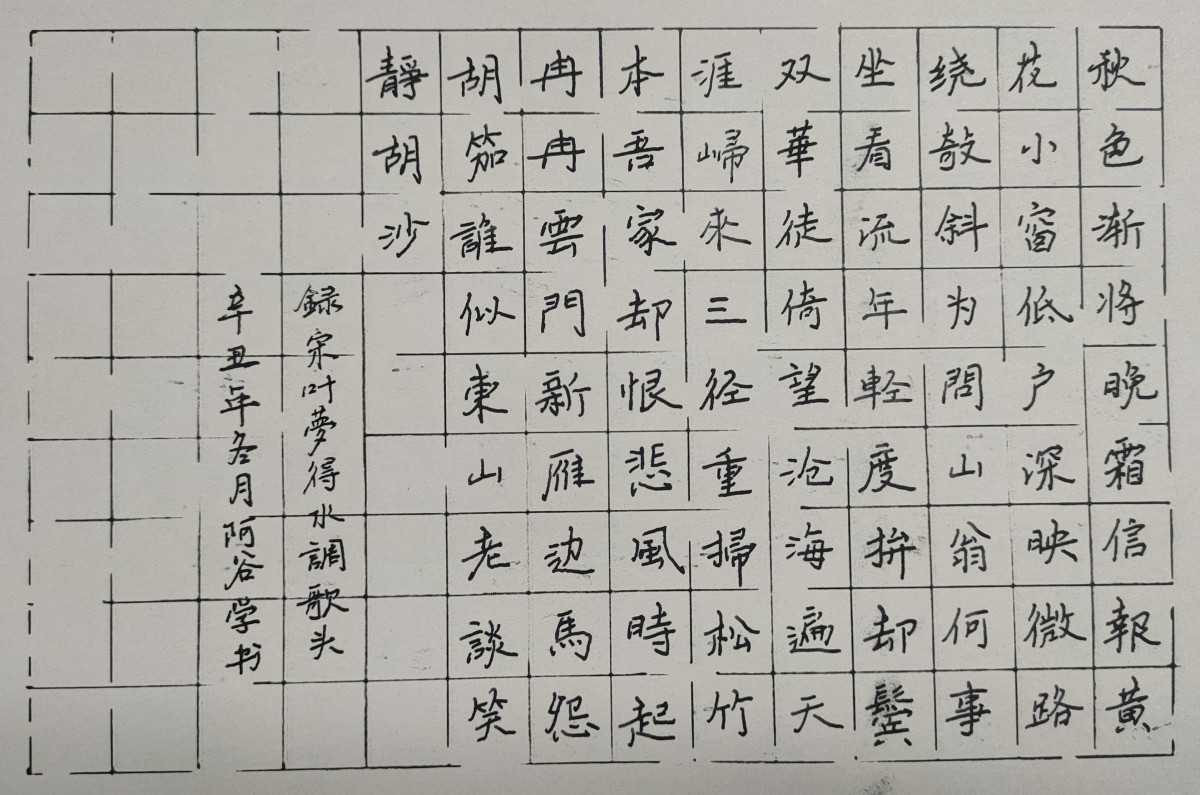 秋色渐将晚霜信報黄
花小窗低户深映微路
绕敧斜为問山翁何事
坐看流年軽度拚却鬓
双華徒倚望沧海遍天
涯歸來三径重掃松竹
本吾家却恨悲風時起
冉冉雲門新雁边馬怨
胡笳誰似東山老談笑
靜胡沙
録宋叶夢得水調歌头
辛丑年冬月阿谷学书